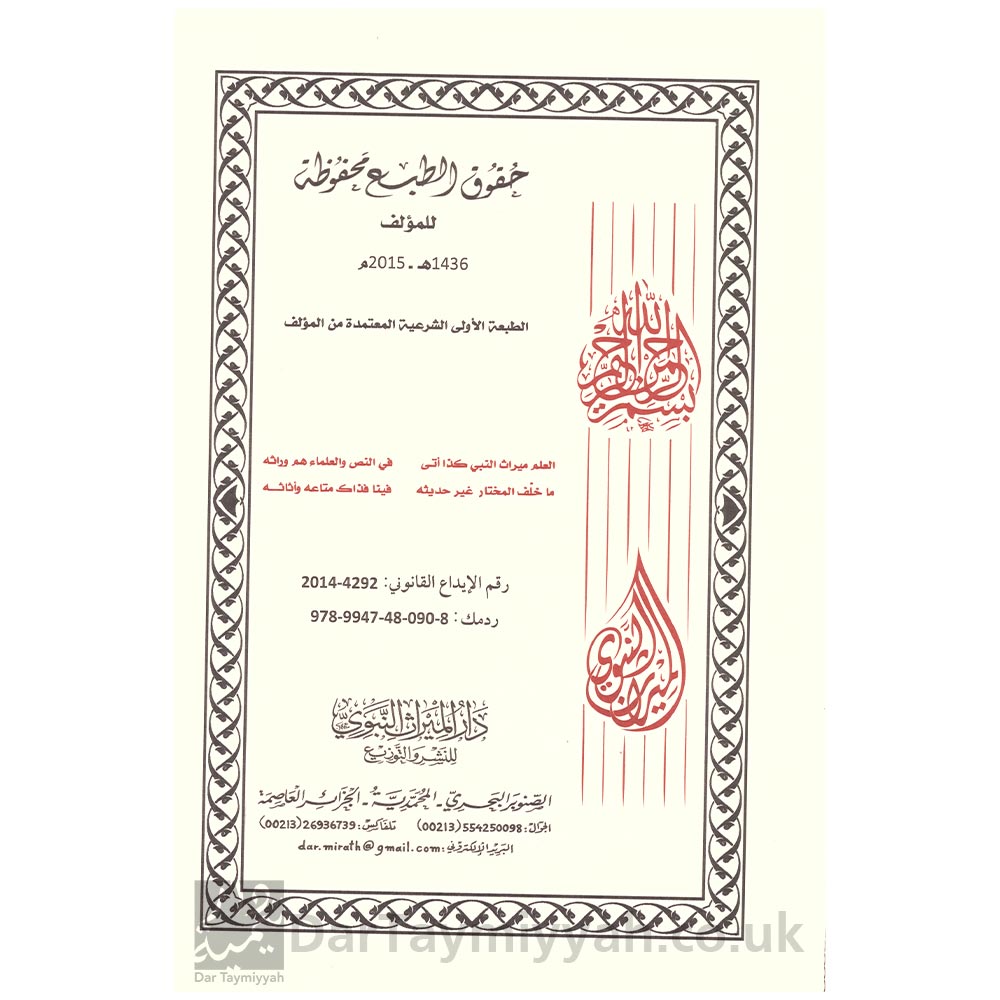 حُقُوق الطبع مَحفُوظة
للمؤلف
1436هـ - 2015م
الطبعة الأولى الشرعية المعتمدة من المؤلف
بسم الله الرحمن الرحيم
العلم ميراث النبي كذا أتى في النص والعلماء هم وراثه
ما خلّف المختار غير حديثه فينا فذاك متاعه وأثاثـه
رقم الإيداع القانوني: 4292-2014
ردمك: 978-9947-48-090-8
الميراث النبوي
دَارُ الميراث النَّبَوِيّ
للنَّشر والتَّوزيع
الصنوبر البحري - المحمَّديَّة - الجزائر العاصمة
الجوال: 554250098(00213) تلفاكس: 26936739(00213)
البريد الإلكتروني: dar.mirath@gmail.com
DarTaymiyyah.co.uk
Dar Taymiyyah